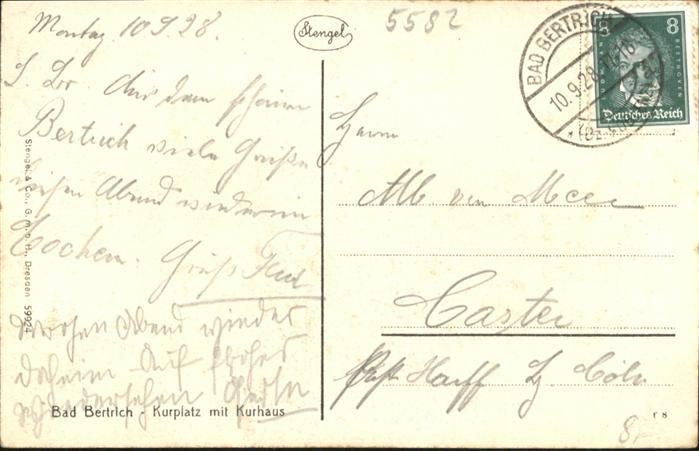 Montag 10.9.28.
L. Aus dem schönen
Bertrich viele Grüße
Abend wieder in
Cochem. Gruß
morgen Abend wieder
daheim Auf frohes
Wiedersehen
Stengel
5582
BAD BERTRICH
10.9.28
8 8
BEETHOVEN
Deutsches Reich
Herrn
Alb van Meer
Caster
Post Harff Bz Cöln
8,-
Stengel & Co., G. m. b. H., Dresden 59924
Bad Bertrich - Kurplatz mit Kurhaus